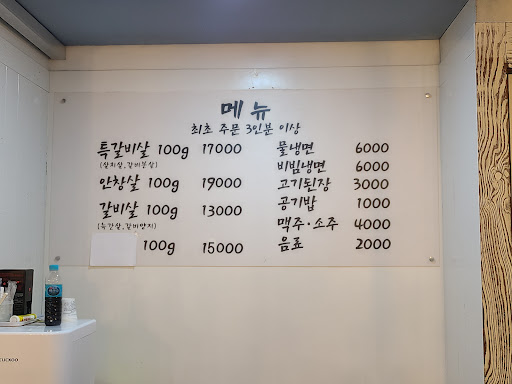 메뉴
최초 주문 3인분 이상
특갈비살 100g 17000
(살치살,갈비본살)
안창살 100g 19000
갈비살 100g 13000
100g 15000
물냉면 6000
비빔냉면 6000
고기된장 3000
공기밥 1000
맥주·소주 4000
음료 2000
CUCKOO